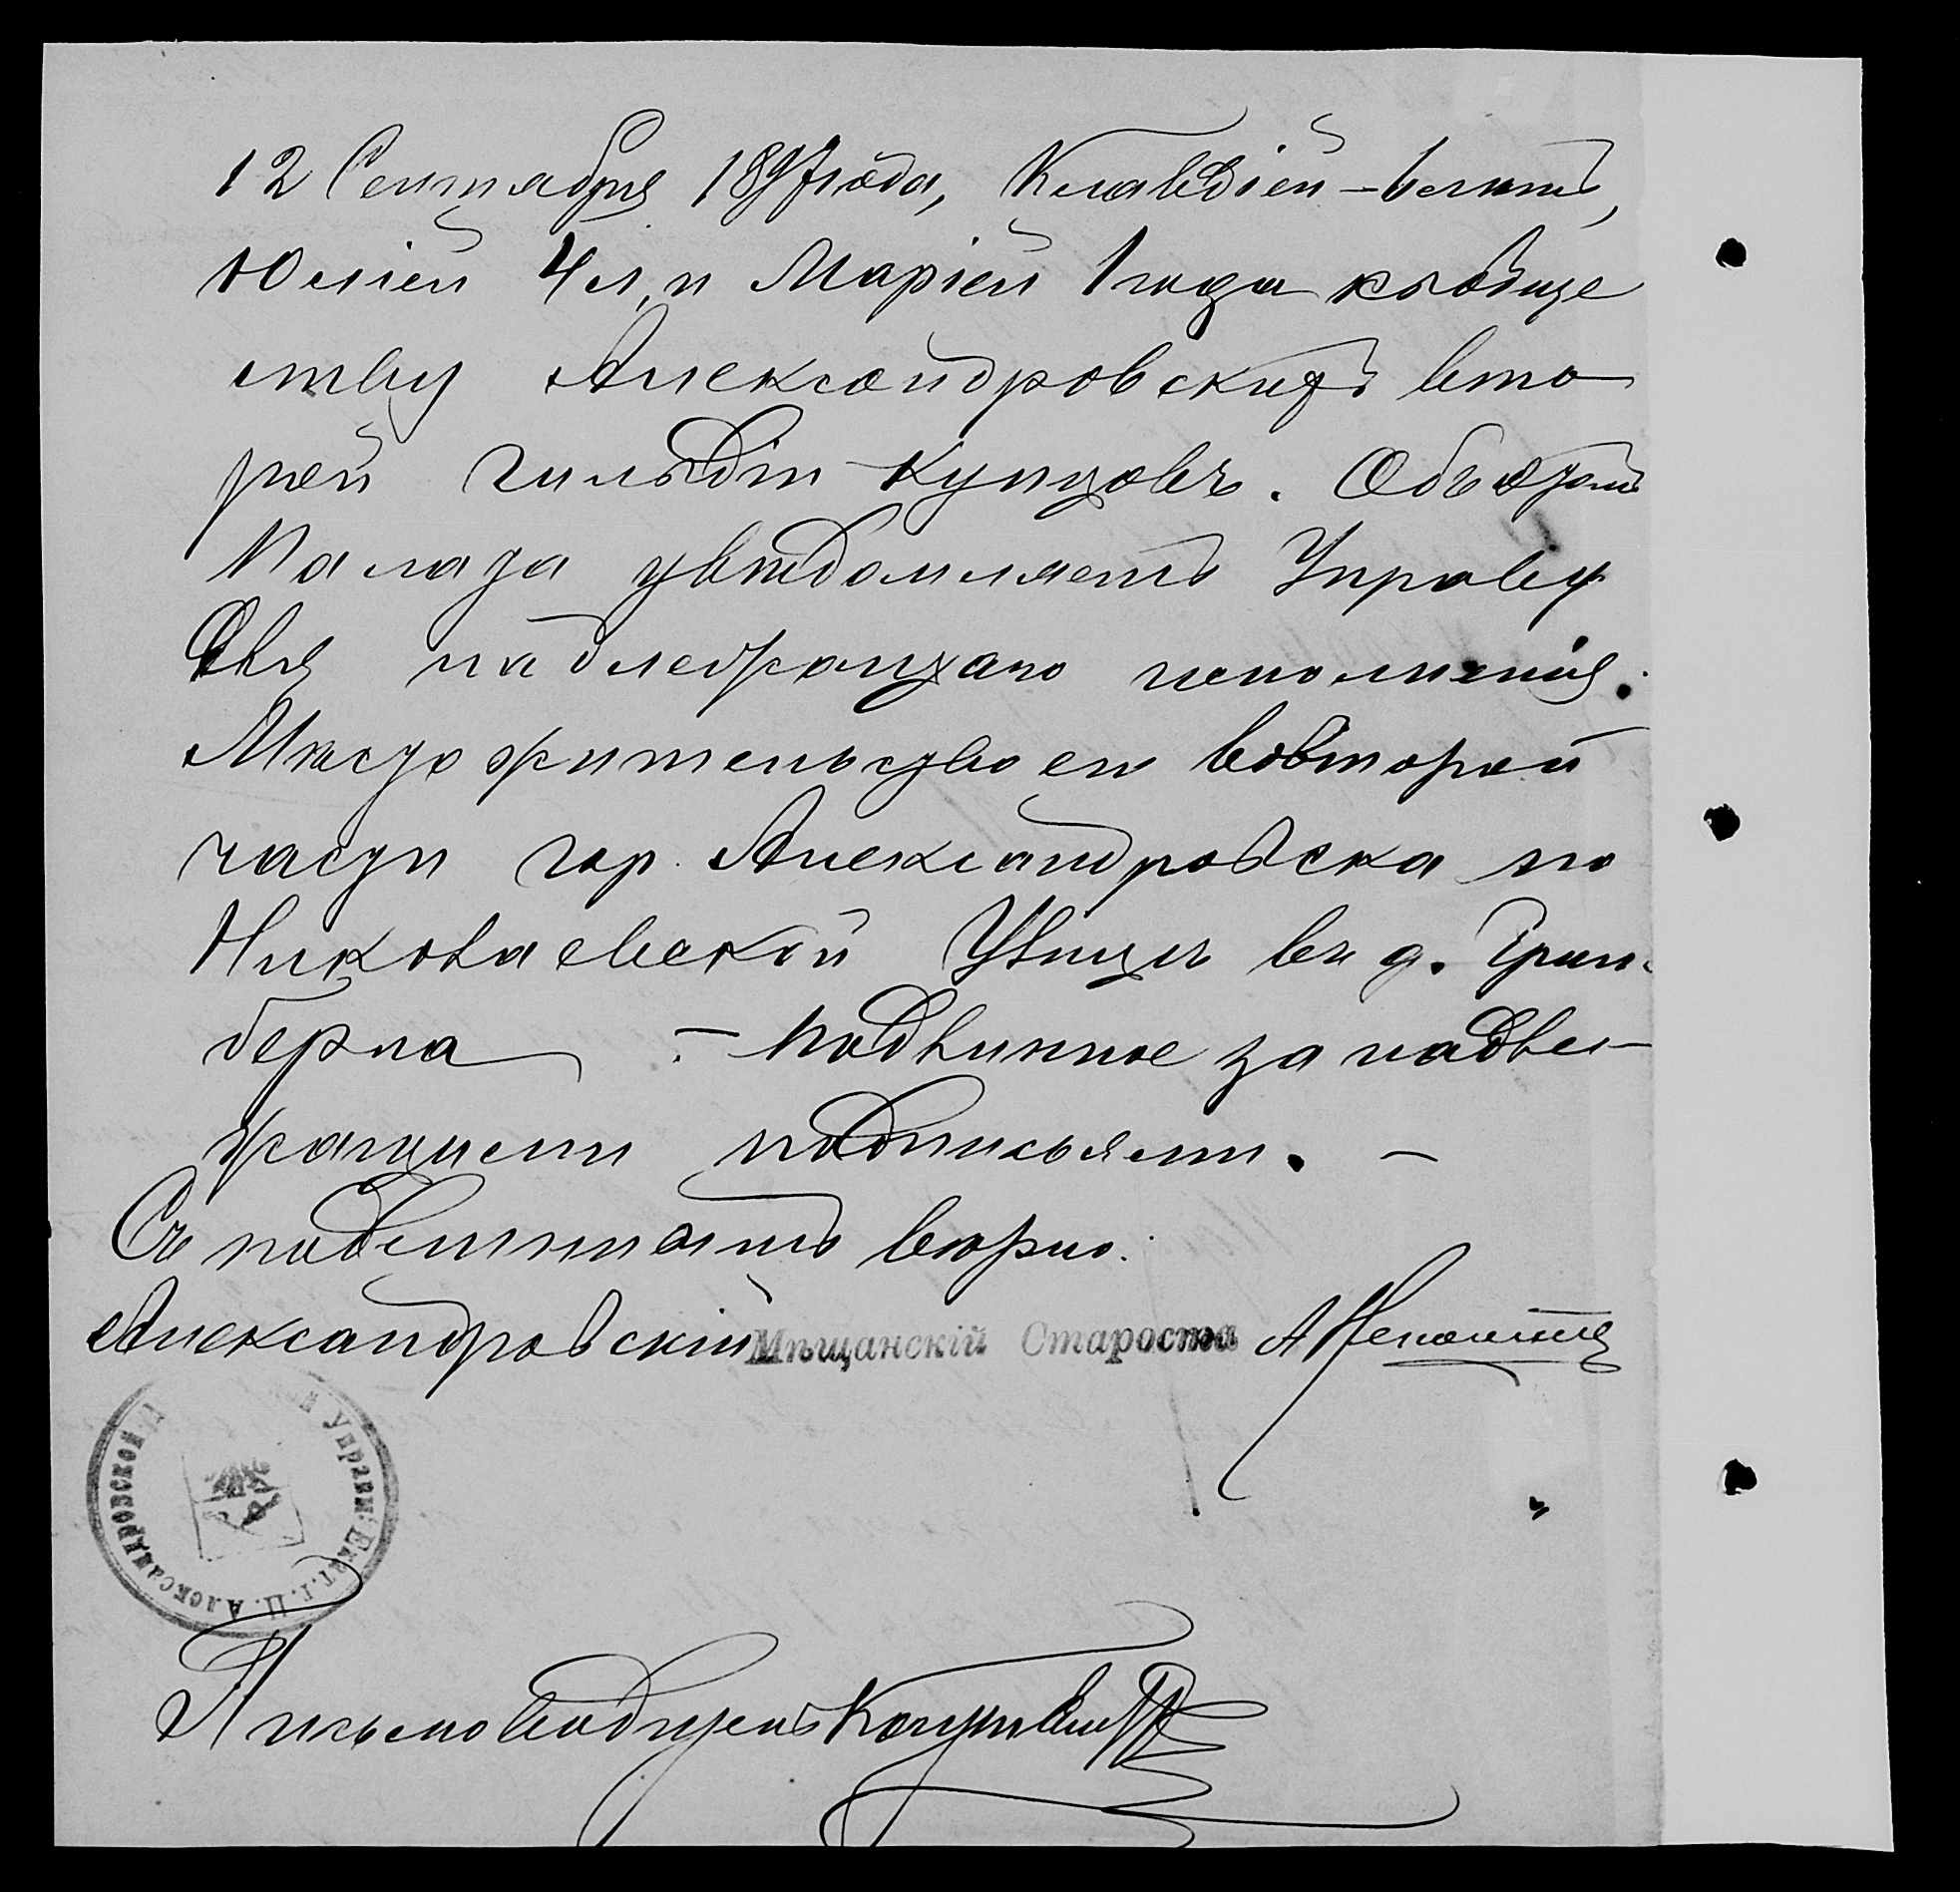 12 Сентября 1897 года, Клавдіей – 6 лѣтъ,
Юліей 4 л, и Маріей 1 года къ обще
ству Александровскихъ вто
рой гильдіи купцовъ. Объ этомъ
Палата увѣдомляетъ Управу
для надлежащаго исполненія.
Мѣсто жительство ея во второй
части гор. Александровска по
Николаевской Улицѣ въ д. Грин-
берга – Подлинное за надле-
жащими подписьями. –
Съ подлиннымъ вѣрно:
Александровскій Мѣщанскій Староста
Александровской Управы Екат. Г.
Письмоводитель